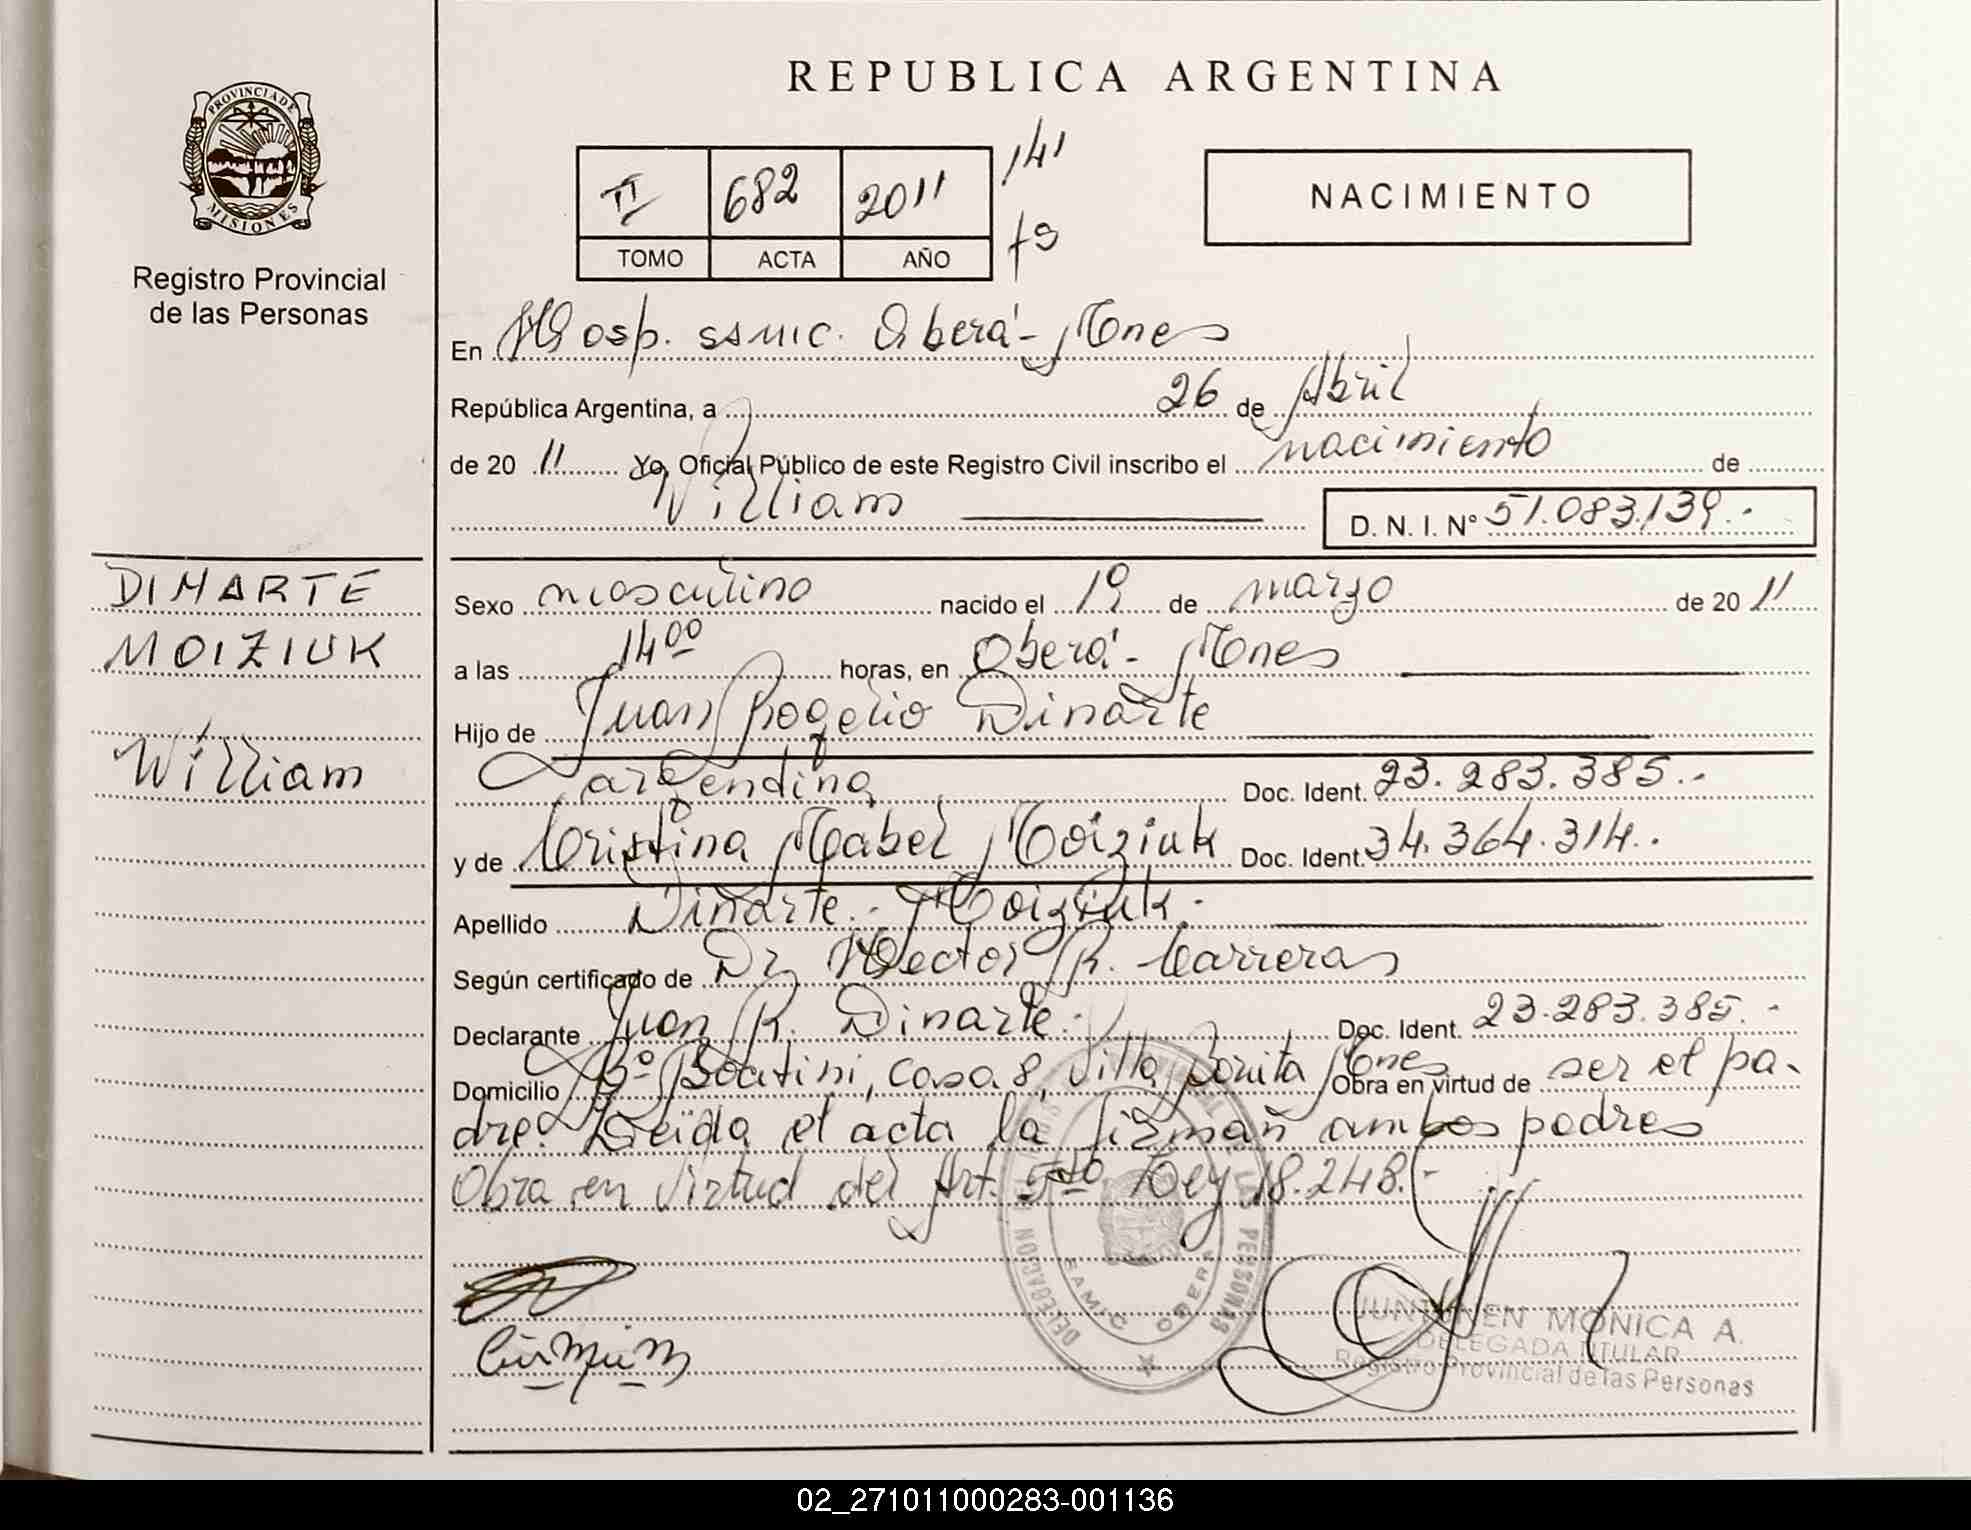 REPUBLICA ARGENTINA
PROVINCIA DE
MISIONES
Registro Provincial
de las Personas
II 682 2011 141
TOMO ACTA AÑO fs
NACIMIENTO
En Hosp. ssmic. Oberá - Mnes
República Argentina, a 26 de Abril
de 20 11 Yo, Oficial Público de este Registro Civil inscribo el nacimiento de
William D. N. I. N° 51.083.139.-
DINARTE
MOIZIUK
William
Sexo masculino nacido el 19 de marzo de 20 11
a las 14 00 horas, en Oberá - Mnes
Hijo de Juan Rogelio Dinarte
argentino Doc. Ident. 23.283.385.-
y de Cristina Mabel Moiziuk Doc. Ident. 34.364.314.-
Apellido Dinarte - Moiziuk.
Según certificado de Dr Hector R. Carreras
Declarante Juan R. Dinarte.- Doc. Ident. 23.283.385.-
Domicilio Bº Boatini, casa 8 Villa Bonita Mnes Obra en virtud de ser el pa-
dre. Leída el acta la firman ambos padres
Obra en virtud del Art. 5to Ley 18.248.-
JUNTUNEN MONICA A.
DELEGADA TITULAR
Registro Provincial de las Personas
02_271011000283-001136